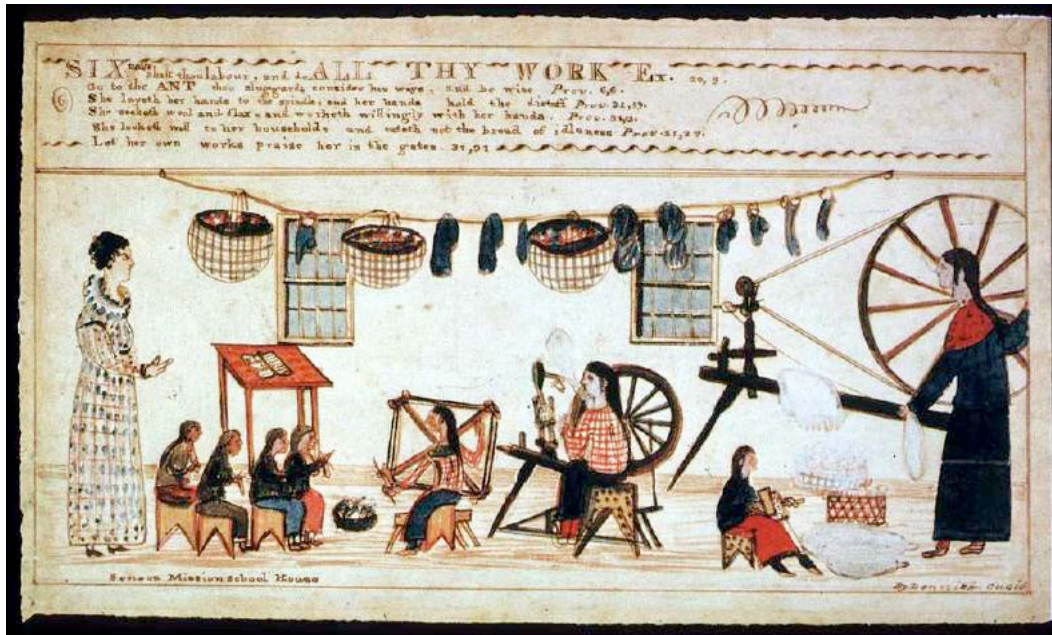 SIX days shalt thou labour, and do ALL THY WORK Ex. 20, 9.
Go to the ANT thou sluggard; consider her ways, and be wise Prov. 6,6.
She layeth her hands to the spindle; and her hands hold the distaff Prov. 31,19.
She seeketh wool and flax, and worketh willingly with her hands. Prov. 31,13.
She looketh well to her household; and eateth not the bread of idleness Prov. 31,27.
Let her own works praise her in the gates. 31,31
Seneca Mission School House
By Dennis Cusic